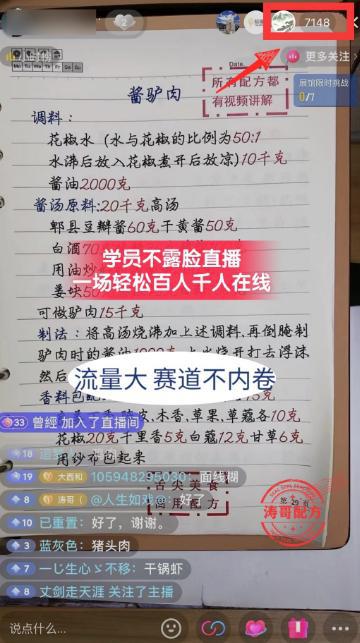 7148
小时榜
更多关注
展馆限时挑战
0/7
Date
所有配方都
有视频讲解
酱驴肉
调料：
花椒水（水与花椒的比例为50:1
水沸后放入花椒煮开后放凉）10千克
酱油2000克
酱汤原料：20千克高汤
郫县豆瓣酱60克干黄酱50克
白酒70
学员不露脸直播
用油炒
一场轻松百人千人在线
姜块50
可做驴肉15千克
制法：将高汤烧沸加上述调料，再倒腌制
驴肉时的酱油1000克
上火烧开打去浮沫
然后
流量大 赛道不内卷
香料包配
33 曾經 加入了直播间
木香，草果，草蔻各10克
花椒20克千里香5克白蔻12克甘草6克
用纱布包起来
18
19 大西和 105948295030：面线糊
8 涛哥（@人生如戏@：好了
舌尖美食
商用配方
第29页
涛哥配方
10 已重置：好了，谢谢。
3 蓝灰色：猪头肉
7 一じ生心ゞ不移：干锅虾
8 丈剑走天涯 关注了主播
说点什么...